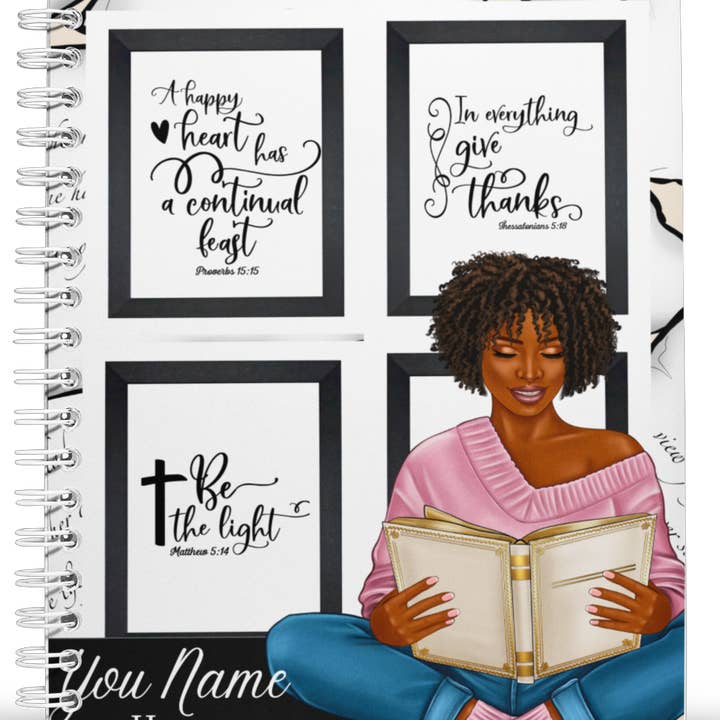 A happy
heart has
a continual
feast
Proverbs 15:15
In everything
give
thanks
Thessalonians 5:18
Be
the light
Matthew 5:14
view
You Name